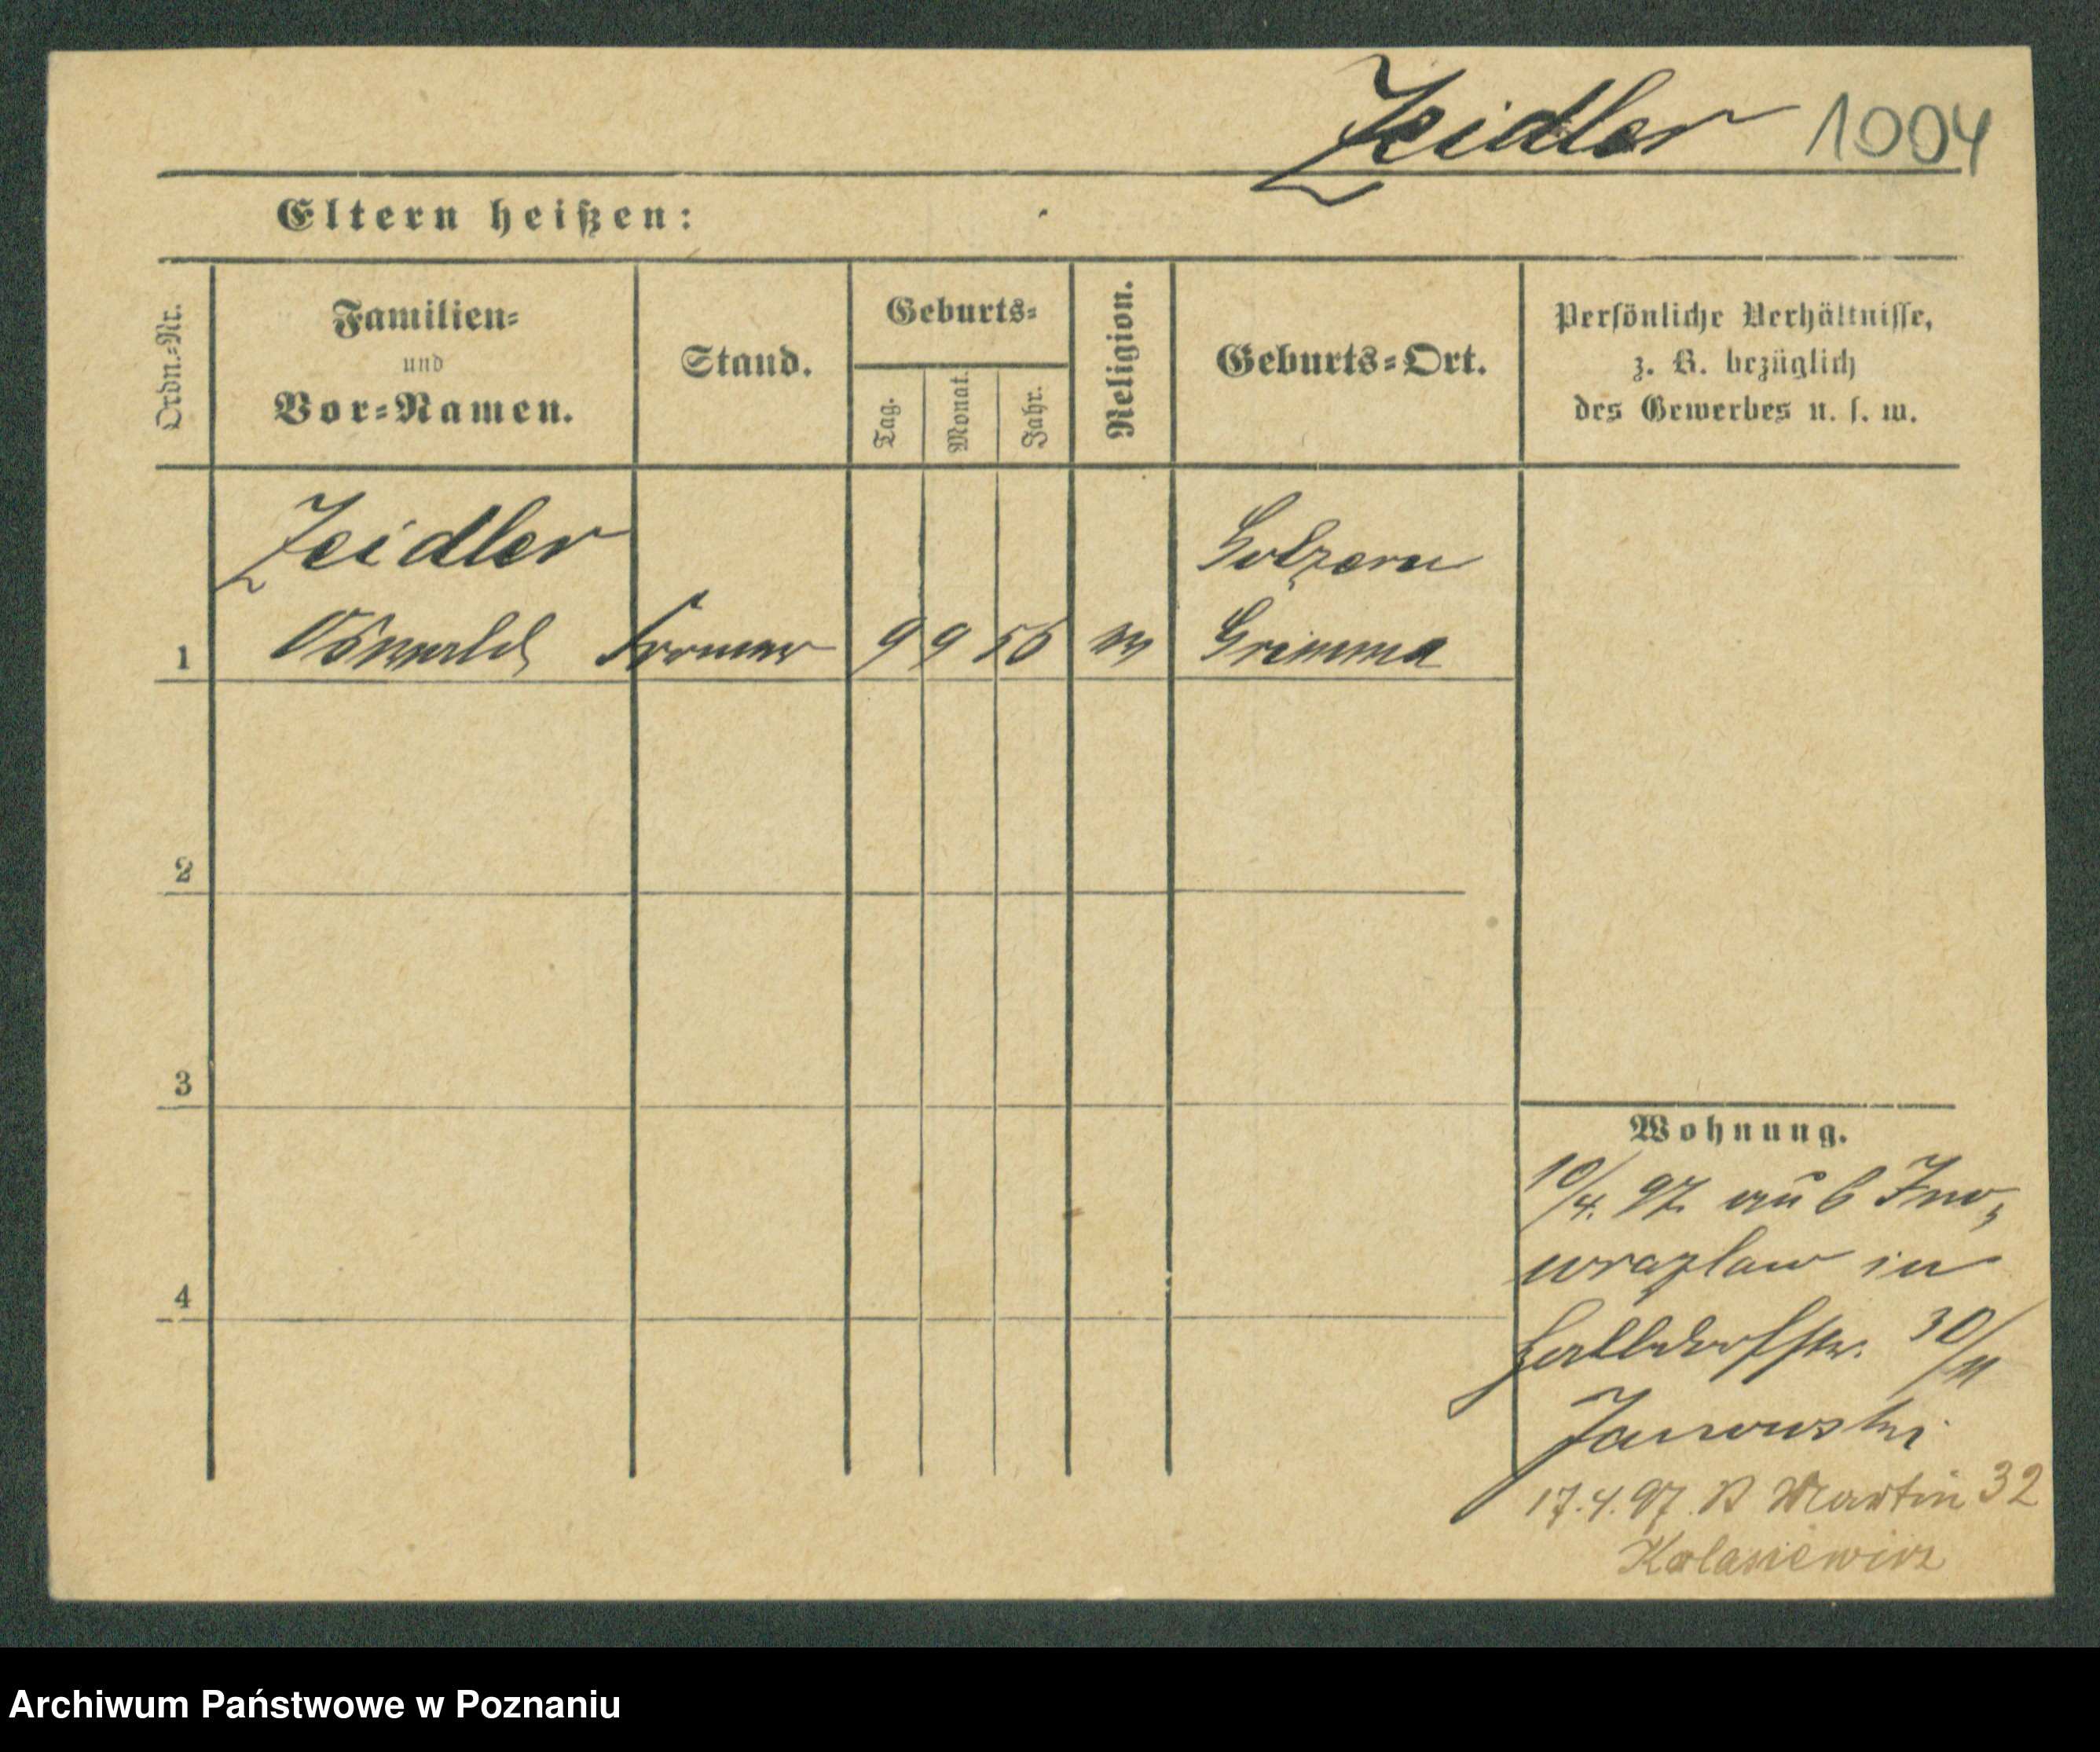 Zeidler 1004
Eltern heißen:
Ordn.=Nr.
Familien=
und
Vor=Namen.
Stand.
Geburts=
Tag.
Monat.
Jahr.
Religion.
Geburts=Ort.
Persönliche Verhältnisse,
z. B. bezüglich
des Gewerbes u. s. w.
Zeidler
Golzern
1 Oswald 9 9 56 Grimma
2
3
4
Wohnung.
10/4. 97. aus Ino-
wrazlaw in
Halbdorfstr. 30/
Janowski
17.4.97. Martin 32
Kolasiewicz
Archiwum Państwowe w Poznaniu